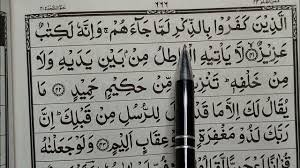 الَّذِيْنَ كَفَرُوْا بِالذِّكْرِ لَمَّا جَآءَهُمْ ۚ وَاِنَّهٗ لَكِتٰبٌ
عَزِيْزٌ ﴿٤١﴾ لَّا يَأْتِيْهِ مِنْۢ بَيْنِ يَدَيْهِ وَلَا
مِنْ خَلْفِهٖ ؕ تَنْزِيْلٌ مِّنْ حَكِيْمٍ حَمِيْدٍ ﴿٤٢﴾ مَا
يُقَالُ لَكَ اِلَّا مَا قَدْ قِيْلَ لِلرُّسُلِ مِنْ قَبْلِكَ ؕ اِنَّ
رَبَّكَ لَذُوْ مَغْفِرَةٍ وَّذُوْ عِقَابٍ اَلِيْمٍ ﴿٤٣﴾ وَلَوْ جَعَلْنٰهُ